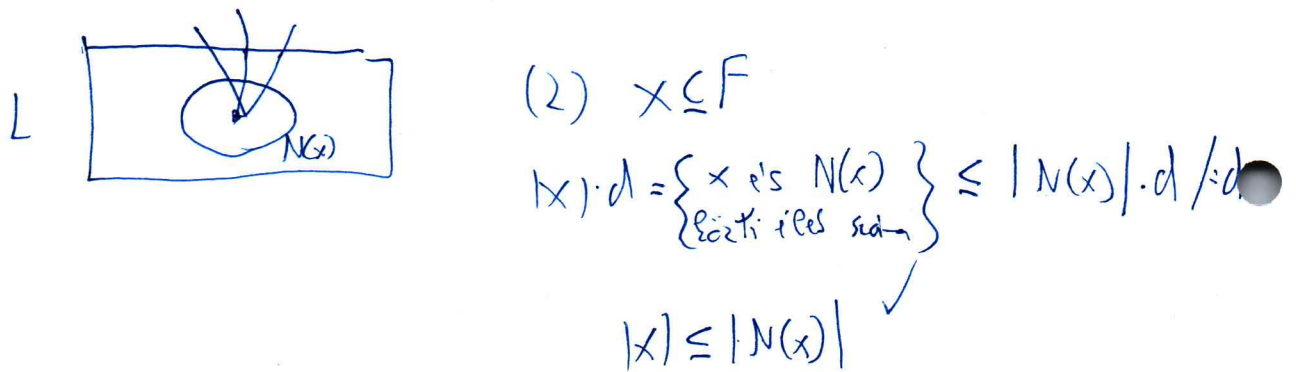 L
N(x)
(2) X ⊆ F
|X|·d = { X és N(x) közti élek száma } ≤ |N(x)|·d /:d
✓
|X| ≤ |N(x)|